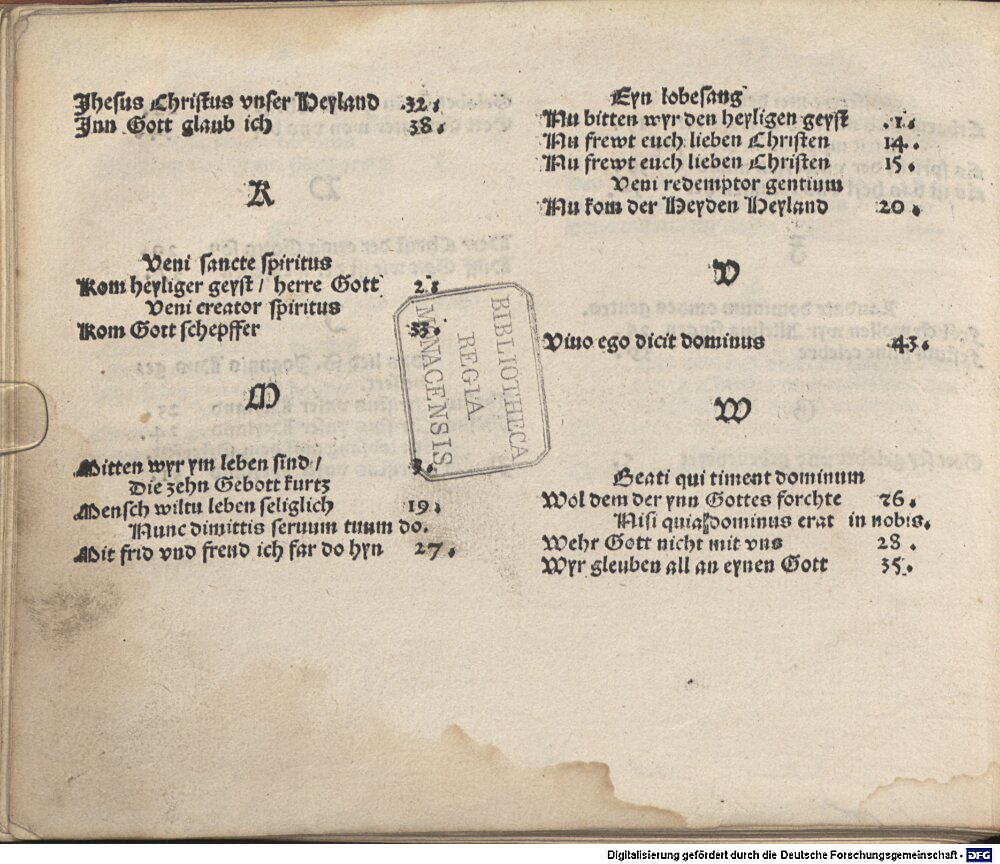 Jhesus Christus vnser Heyland 32.
Jnn Gott glaub ich 38.
K
Veni sancte spiritus
Kom heyliger geyst / herre Gott 2.
Veni creator spiritus
Kom Gott schepffer 33.
M
Mitten wyr ym leben sind /
Die zehn Gebott kurtz
Mensch wiltu leben seliglich 19.
Nunc dimittis seruum tuum do.
Mit frid vnd freud ich far do hyn 27.
BIBLIOTHECA
REGIA
MONACENSIS.
Eyn lobesang
Nu bitten wyr den heyligen geyst .1.
Nu frewt euch lieben Christen 14.
Nu frewt euch lieben Christen 15.
Veni redemptor gentium
Nu kom der Heyden Heyland 20.
V
Viuo ego dicit dominus 43.
W
Beati qui timent dominum
Wol dem der ynn Gottes forchte 26.
Nisi quia dominus erat in nobis.
Wehr Gott nicht mit vns 28.
Wyr gleuben all an eynen Gott 35.
Digitalisierung gefördert durch die Deutsche Forschungsgemeinschaft - DFG